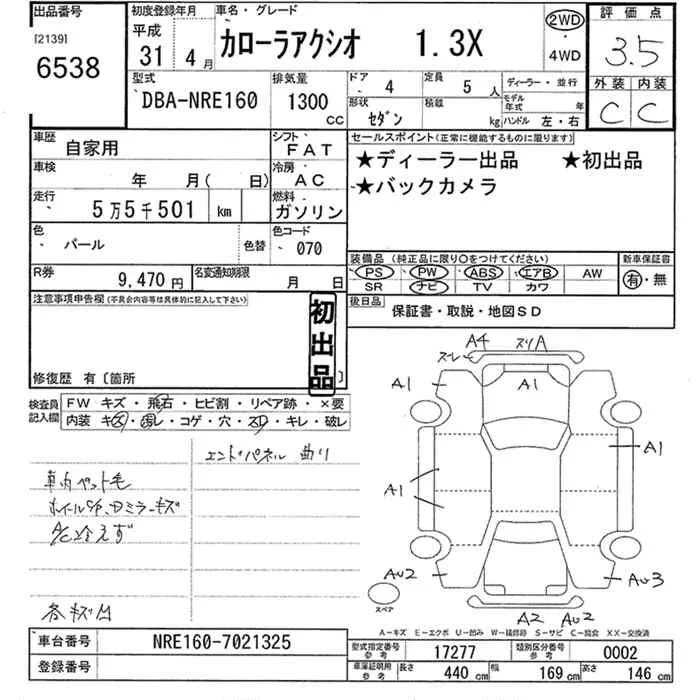 出品番号 初度登録年月 車名・グレード 評価点
[2139] 平成 2WD
6538 31 4月 カローラアクシオ 1.3X 4WD 3.5
型式 排気量 ドア 4 定員 5人 ディーラー・並行 外装 内装
DBA-NRE160 1300CC 形状 セダン 積載 kg モデル年式 年 ハンドル 左・右 C C
車歴 自家用 シフト FAT セールスポイント(正常に機能するものに限ります)
車検 年 月( 日) 冷房 AC ★ディーラー出品 ★初出品
走行 5万5千501 km 燃料 ガソリン ★バックカメラ
色 パール 色替 色コード 070
装備品(純正品に限り○をつけてください) 新車保証書
R券 9,470円 名変通知期限 月 日 PS PW ABS エアB AW 有・無
SR ナビ TV カワ
注意事項申告欄(不具合内容等は具体的に記入して下さい) 後日品 保証書・取説・地図SD
初出品
修復歴 有〔箇所 〕
検査員記入欄 FW キズ・飛石・ヒビ割・リペア跡・×要
内装 キズ・汚レ・コゲ・穴・スレ・キレ・破レ
エンドパネル 曲り
車内ペット毛
ホイールCP.Dミラーキズ
A/C冷えず
各キズ凹
A4 スリA
スレ
A1 A1
A1
A1
AU2 AU3
スペア
A2 AU2
A-キズ E-エクボ U-凹み W-補修跡 S-サビ C-腐食 XX-交換済
車台番号 NRE160-7021325 型式指定番号 参考 17277 類別区分番号 参考 0002
登録番号 車庫証明用 参考 長さ 440cm 幅 169cm 高さ 146cm